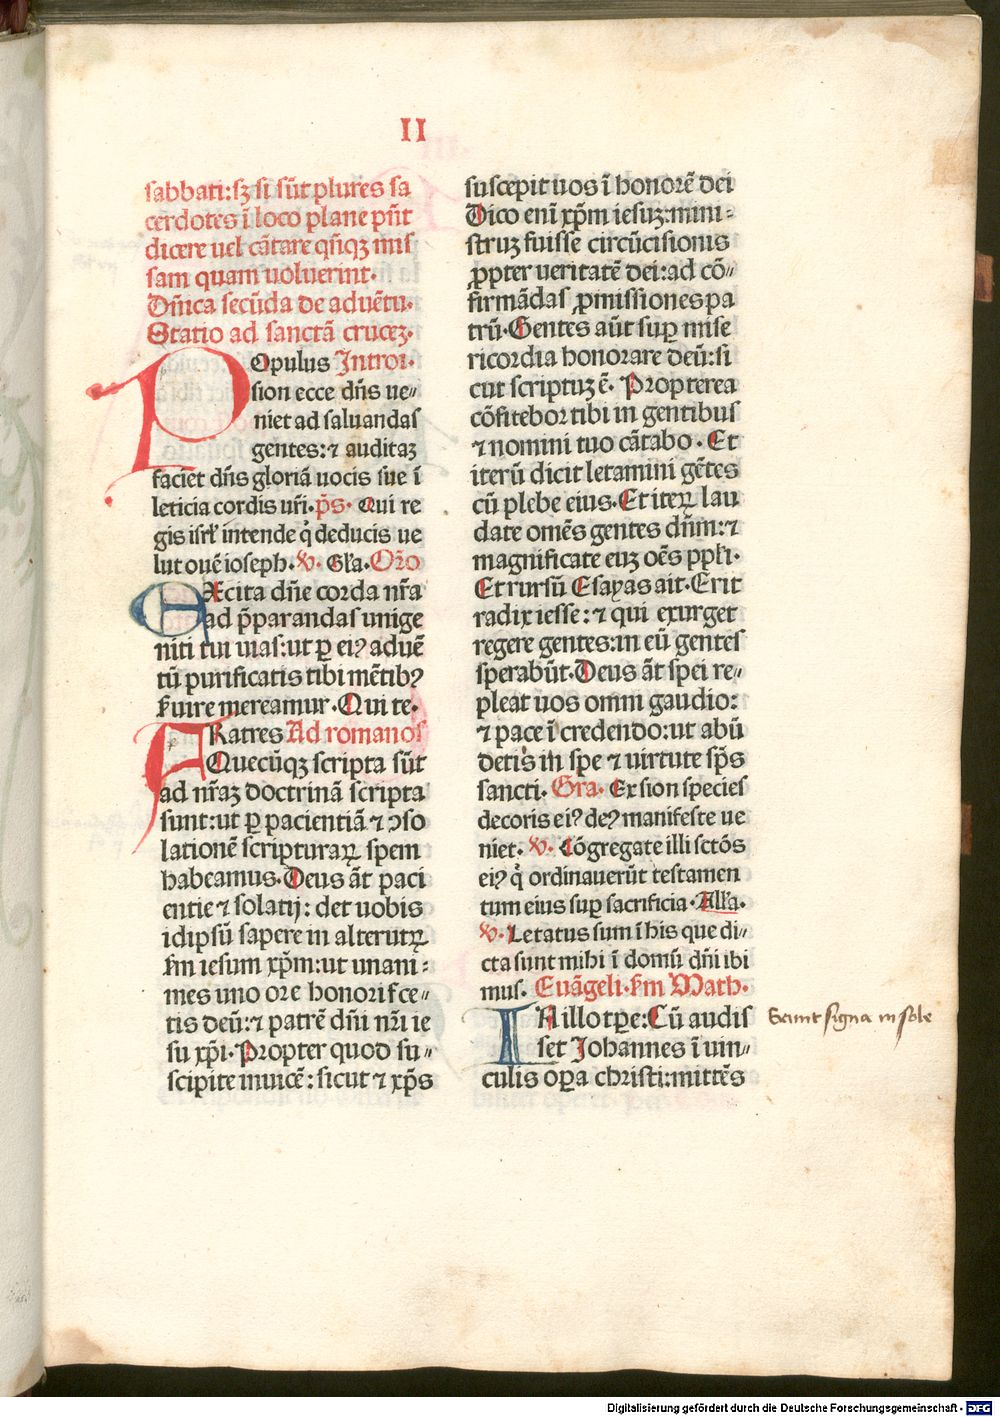 II
sabbati:sꝫ si sūt plures sa
cerdotes ī loco plane pn̄t
dicere uel cātare qn̄qꝫ mis
sam quam uoluerint.
Dn̄ica secūda de aduētu.
Statio ad sanctā cruceꝫ.
POpulus Introi.
sion ecce dn̄s ue〃
niet ad saluandas
gentes:⁊ auditaꝫ
faciet dn̄s gloriā uocis sue ī
leticia cordis ur̄i. p̄s. Qui re
gis isrł intende q̇ deducis ue
lut ouē ioseph. ℣. Gła. Or̄o
EXcita dn̄e corda nr̄a
ad p̄parandas unige
niti tui uias:ut ꝑ eiꝰ aduē
tū purificatis tibi mētibꝰ
ẜuire mereamur. Qui te.
FRatres Ad romanos
Quecūqꝫ scripta sūt
ad nr̄aꝫ doctrinā scripta
sunt:ut ꝑ pacientiā ⁊ ↄso
lationē scripturaꝝ spem
habeamus. Deus āt paci
entie ⁊ solatij: det uobis
idipsū sapere in alterutꝝ
ẜm iesum xp̄m:ut unani:
mes uno ore honorifce〃
tis deū:⁊ patrē dn̄i nr̄i ie
su xp̄i. Propter quod su〃
scipite inuicē: sicut ⁊ xp̄s
suscepit uos ī honorē dei
Dico enī xp̄m iesuꝫ:mini:
struꝫ fuisse circūcisionis
ꝓpter ueritatē dei:ad cō〃
firmādas ꝓmissiones pa
trū. Gentes aūt suꝑ mise
ricordia honorare deū:si
cut scriptuꝫ ē. Propterea
cōfitebor tibi in gentibus
⁊ nomini tuo cātabo. Et
iterū dicit letamini gētes
cū plebe eius. Et iteꝝ lau
date omēs gentes dn̄m:⁊
magnificate euꝫ oēs pplī.
Et rursū Esayas ait. Erit
radix iesse:⁊ qui exurget
regere gentes:in eū gentes
sperabūt. Deus āt spei re〃
pleat uos omni gaudio:
⁊ pace ī credendo:ut abū
detis in spe ⁊ uirtute sp̄s
sancti. Gra. Ex sion species
decoris eiꝰ deꝰ manifeste ue
niet. ℣. Cōgregate illi sctōs
eiꝰ q̇ ordinauerūt testamen
tum eius suꝑ sacrificia. Ałła.
℣. Letatus sum ī his que di〃
cta sunt mihi ī domū dn̄i ibi
mus. Euāgeli. ẜm Math.
IN illo tꝑe: Cū audis
set Johannes ī uin〃
culis oꝑa christi:mittēs
Erunt signa in sole
Digitalisierung gefördert durch die Deutsche Forschungsgemeinschaft - DFG